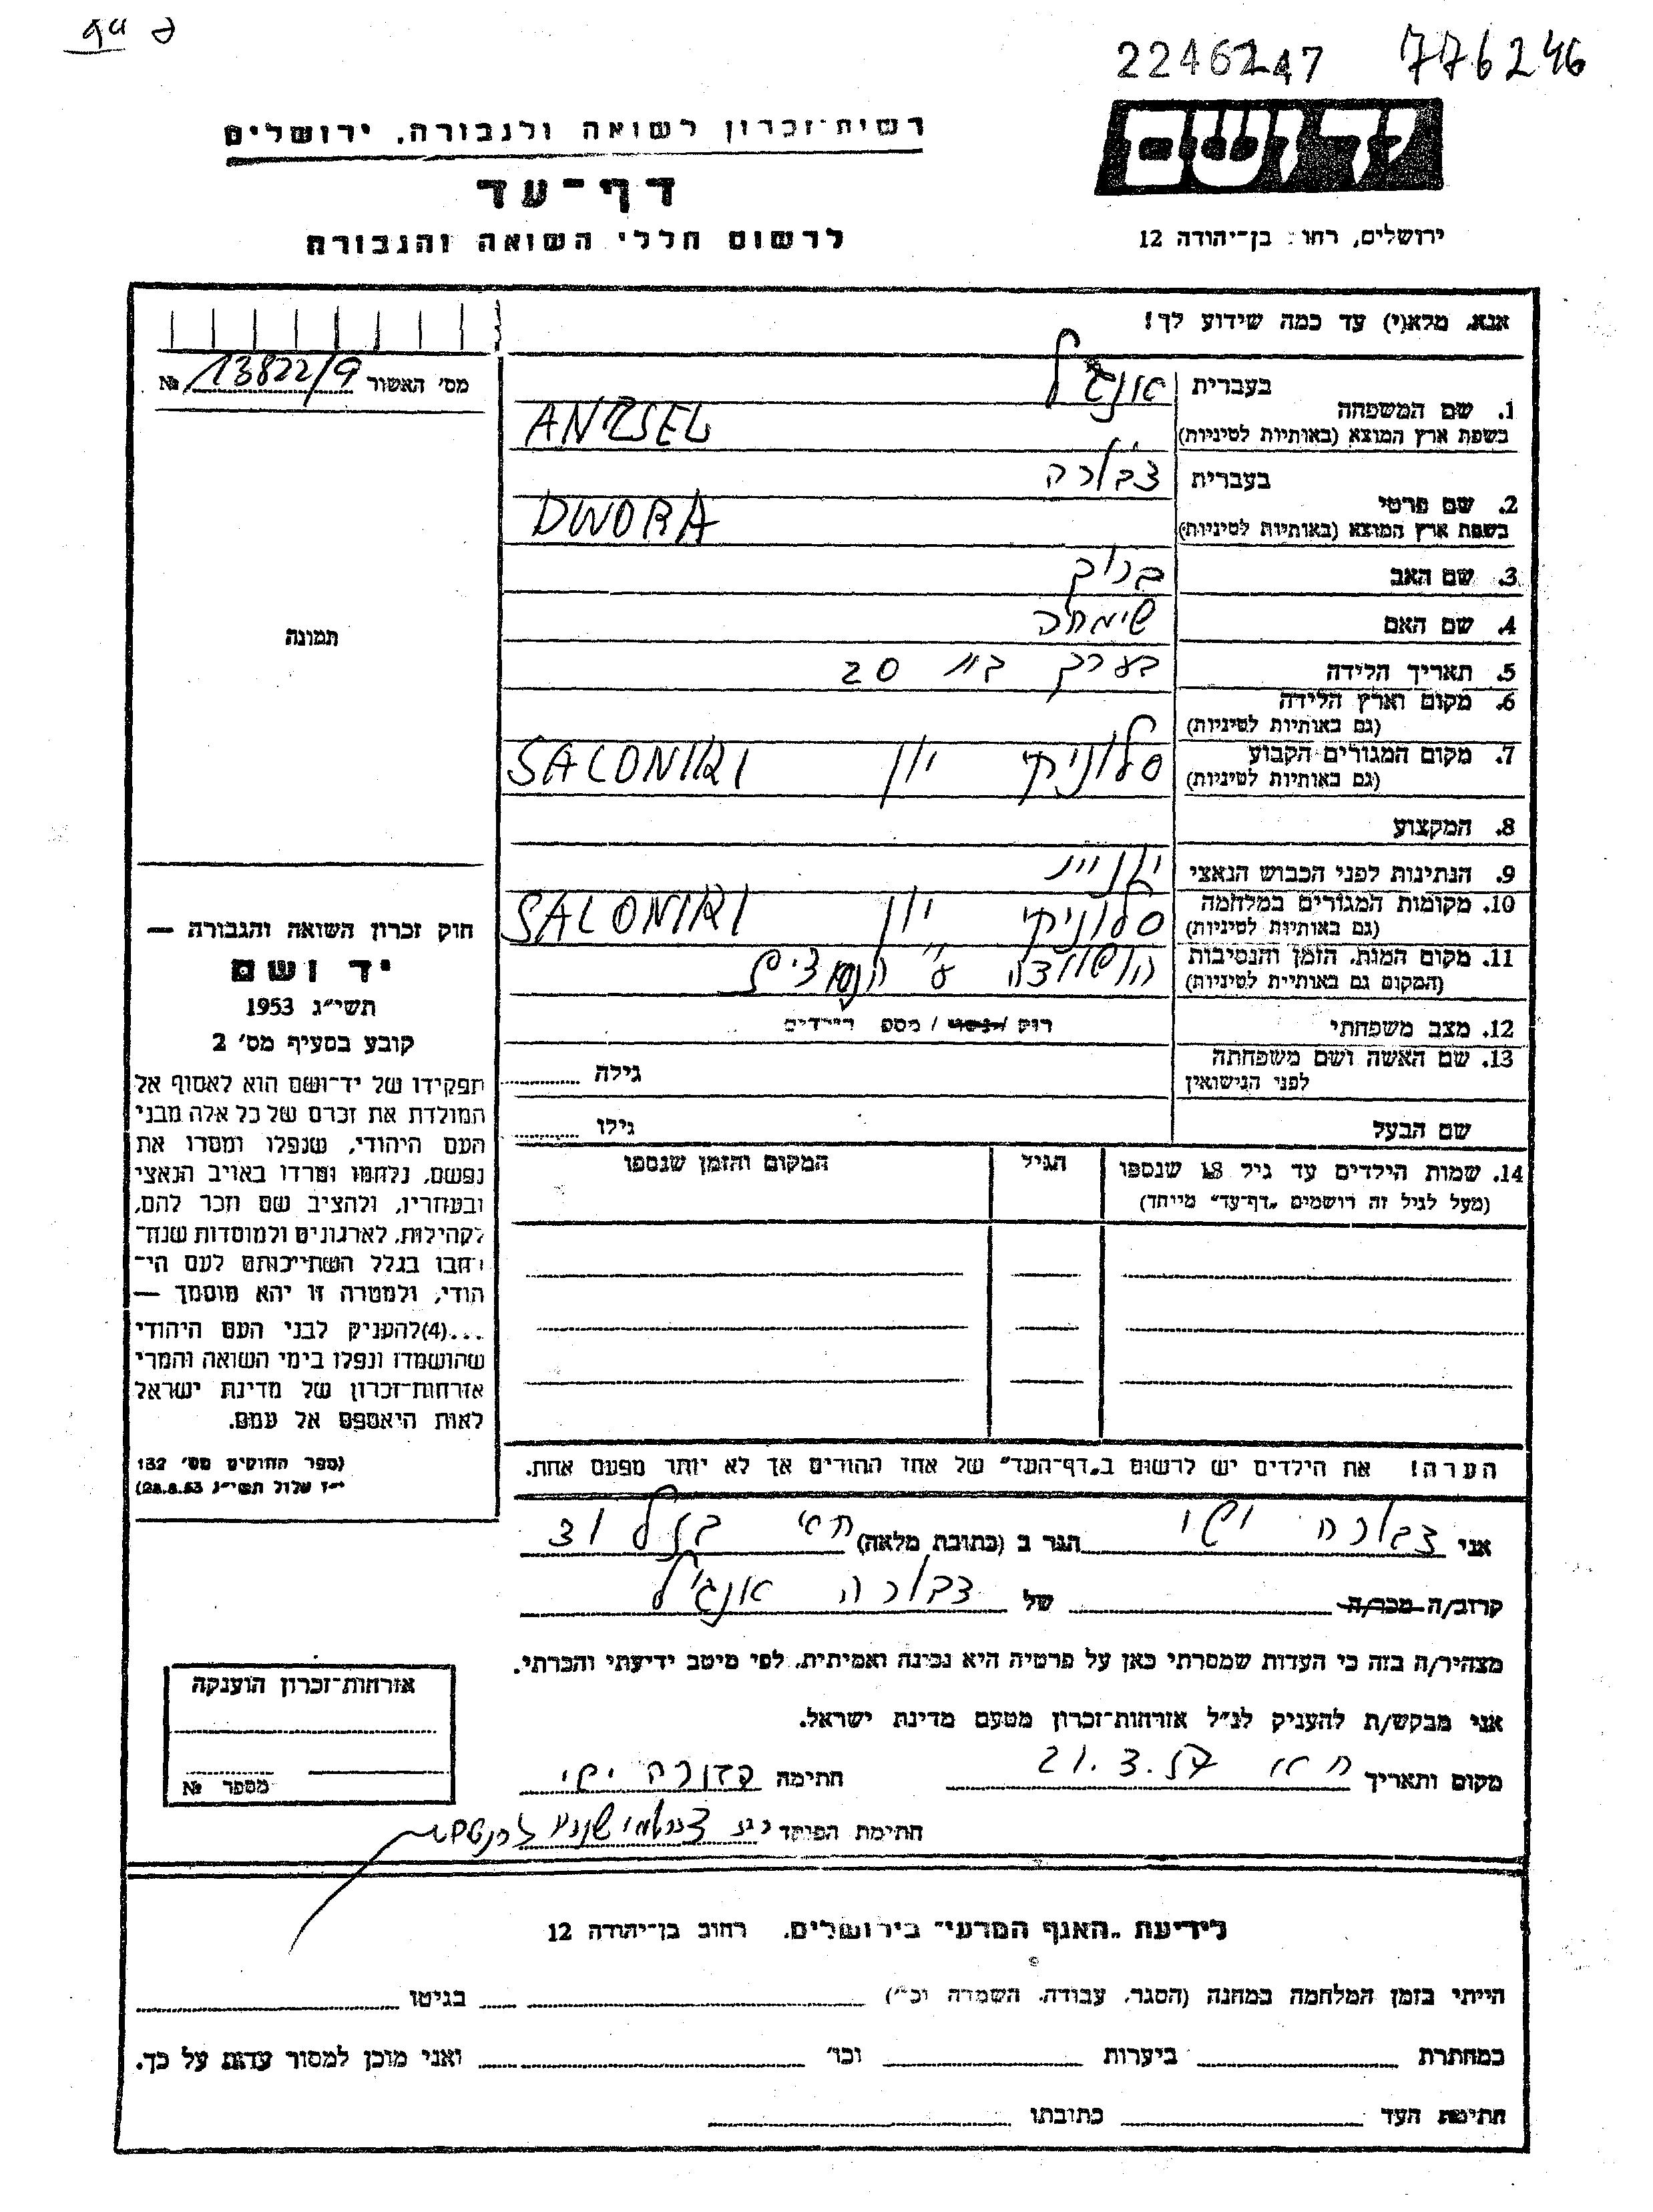 2246247 776246
רשות־זכרון לשואה ולגבורה, ירושלים
יד ושם
דף־עד
לרשום חללי השואה והגבורה
ירושלים, רחוב בן־יהודה 12
אנא, מלא(י) עד כמה שידוע לך!
מס׳ האשור № 13822/9
1. שם המשפחה
בעברית אנג׳ל
בשפת ארץ המוצא (באותיות לטיניות)
2. שם פרטי
בעברית דבורה
בשפת ארץ המוצא (באותיות לטיניות) DWORA
3. שם האב ברוך
4. שם האם שימחה
5. תאריך הלידה בערך בת 20
6. מקום וארץ הלידה
(גם באותיות לטיניות)
7. מקום המגורים הקבוע סלוניקי יון SALONIKI
(גם באותיות לטיניות)
8. המקצוע
9. הנתינות לפני הכבוש הנאצי
10. מקומות המגורים במלחמה סלוניקי יון SALONIKI
(גם באותיות לטיניות)
11. מקום המות, הזמן והנסיבות הושמדה ע״י הנאצים
(המקום גם באותיות לטיניות)
12. מצב משפחתי רוק / נשוי / מספר הילדים
13. שם האשה ושם משפחתה גילה
לפני הנישואין
שם הבעל גילו
14. שמות הילדים עד גיל 18 שנספו הגיל המקום והזמן שנספו
(מעל לגיל זה רושמים „דף־עד״ מייחד)
תמונה
חוק זכרון השואה והגבורה —
יד ושם
תשי״ג 1953
קובע בסעיף מס׳ 2
תפקידו של יד־ושם הוא לאסוף אל
המולדת את זכרם של כל אלה מבני
העם היהודי, שנפלו ומסרו את
נפשם, נלחמו ומרדו באויב הנאצי
ובעוזריו, ולהציב שם וזכר להם,
לקהילות, לארגונים ולמוסדות שנח־
רבו בגלל השתייכותם לעם הי־
הודי, ולמטרה זו יהא מוסמך —
...(4) להעניק לבני העם היהודי
שהושמדו ונפלו בימי השואה והמרי
אזרחות־זכרון של מדינת ישראל
לאות היאספם אל עמם.
(ספר החוקים מס׳ 132
י״ז אלול תשי״ג 28.8.53)
הערה! את הילדים יש לרשום ב„דף־העד״ של אחד ההורים אך לא יותר מפעם אחת.
אני דבורה הגר ב (כתובת מלאה)
קרוב/ה מכר/ה של דבורה אנג׳ל
מצהיר/ה בזה כי העדות שמסרתי כאן על פרטיה היא נכונה ואמיתית, לפי מיטב ידיעתי והכרתי.
אני מבקש/ת להעניק לנ״ל אזרחות־זכרון מטעם מדינת ישראל.
מקום ותאריך 21.3.57 חתימה
חתימת הפוקד
אזרחות־זכרון הוענקה
מספר №
לידיעת „האגף המדעי״ בירושלים, רחוב בן־יהודה 12
הייתי בזמן המלחמה במחנה (הסגר, עבודה, השמדה וכ׳) בגיטו
במחתרת ביערות וכו׳ ואני מוכן למסור עדות על כך.
חתימת העד כתובתו